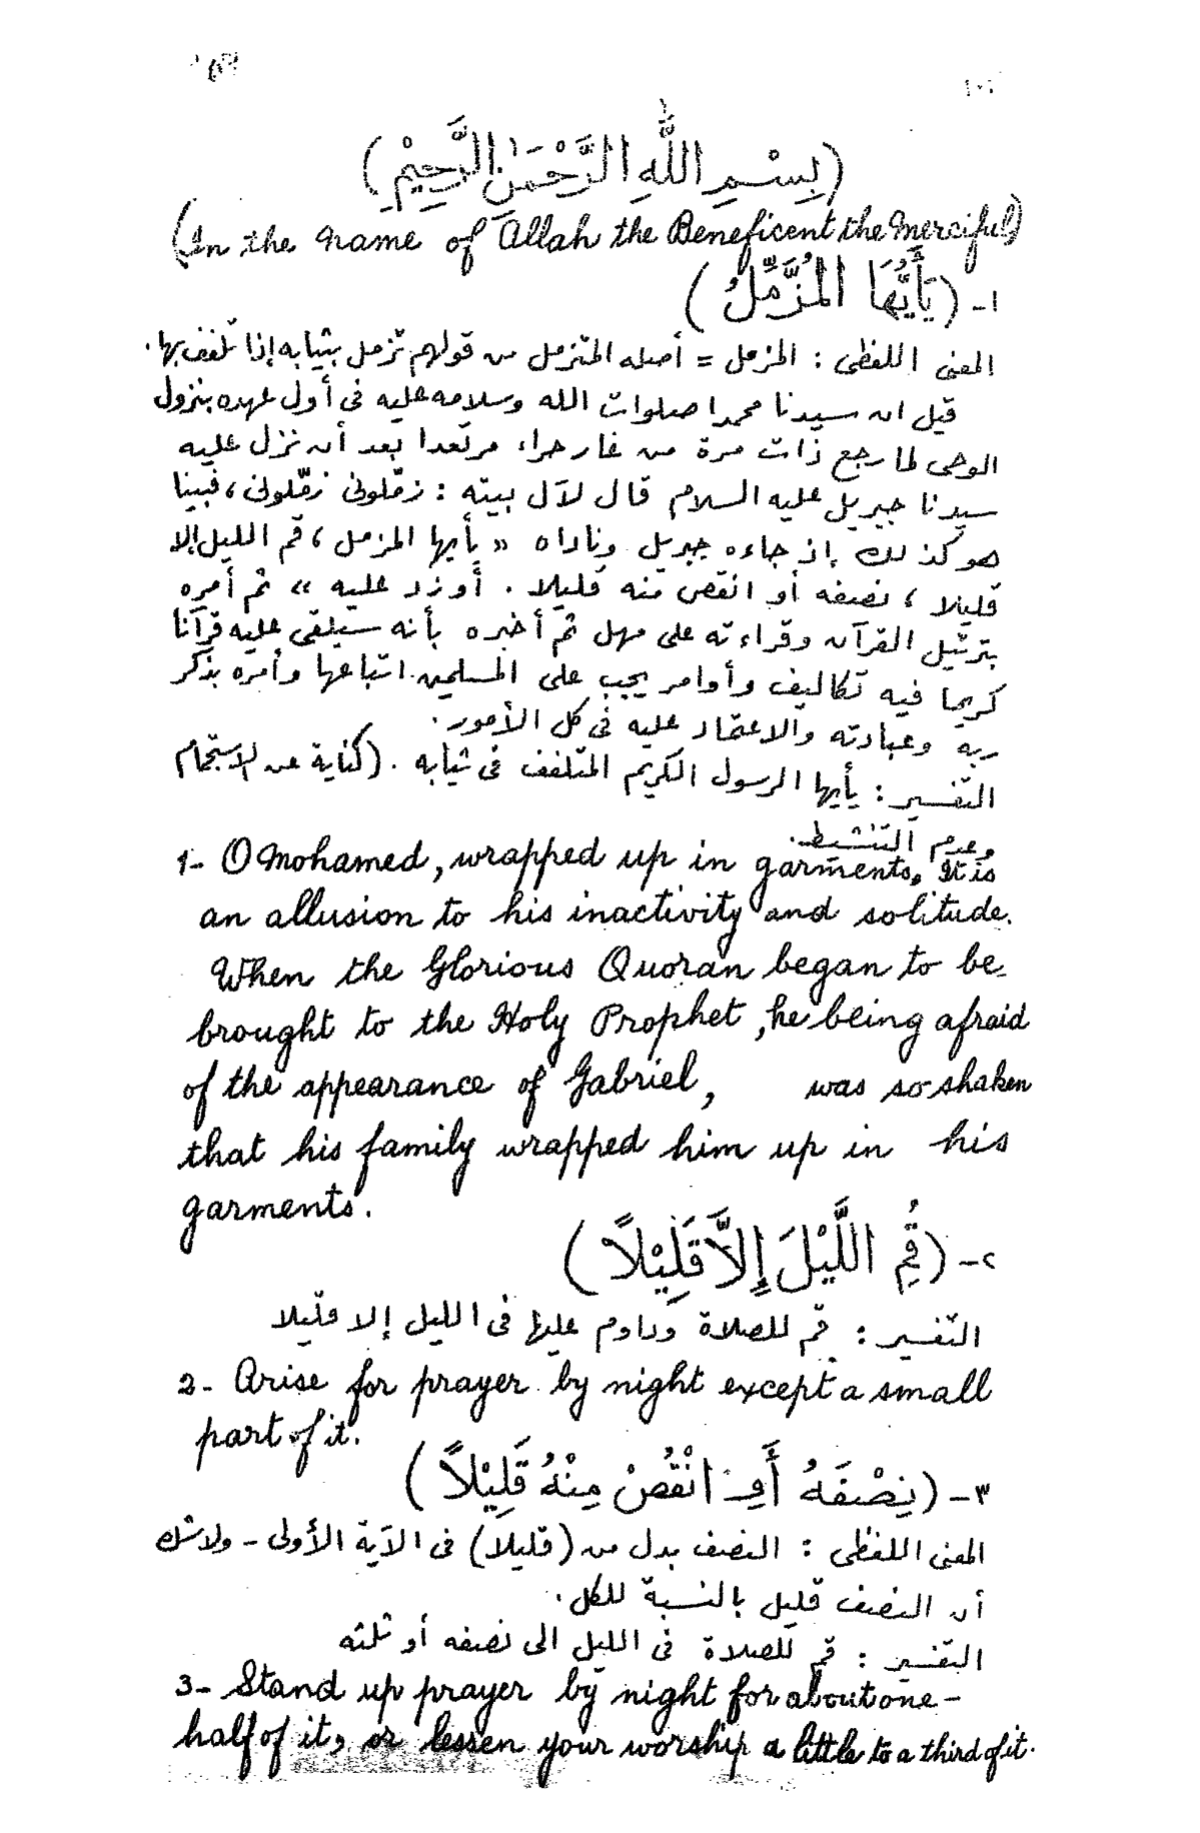 (بِسْمِ اللَّهِ الرَّحْمَٰنِ الرَّحِيمِ)
(In the name of Allah the Beneficent the Merciful)
١- (يَأَيُّهَا الْمُزَّمِّلُ)
المعنى اللفظى : المزمل = أصله المتزمل من قولهم تزمل بثيابه إذا تلفف بها.
قيل ان سيدنا محمدا صلوات الله وسلامه عليه فى أول عهده بنزول
الوحى لما رجع ذات مرة من غار حراء مرتعدا بعد أن نزل عليه
سيدنا جبريل عليه السلام قال لآل بيته : زمّلونى زمّلونى ، فبينا
هو كذلك إذ جاءه جبريل وناداه « يأيها المزمل ، قم الليل إلا
قليلا ، نصفه أو انقص منه قليلا . أو زد عليه » ثم أمره
بترتيل القرآن وقراءته على مهل ثم أخبره بأنه سيلقى عليه قرآنا
كريما فيه تكاليف وأوامر يجب على المسلمين اتباعها وأمره بذكر
ربه وعبادته والاعتماد عليه فى كل الأمور.
التفسير : يأيها الرسول الكريم المتلفف فى ثيابه . (كناية عن الاستجمام
وعدم التنشيط.
1- O Mohamed, wrapped up in garments. It is
an allusion to his inactivity and solitude.
When the Glorious Quoran began to be
brought to the Holy Prophet, he being afraid
of the appearance of Gabriel, was so shaken
that his family wrapped him up in his
garments.
٢- (قُمِ اللَّيْلَ إِلَّا قَلِيْلاً)
التفسير : قم للصلاة وداوم عليها فى الليل إلا قليلا
2- Arise for prayer by night except a small
part of it.
٣- (نِصْفَهُ أَوِ انْقُصْ مِنْهُ قَلِيْلاً)
المعنى اللفظى : النصف بدل من (قليلا) فى الآية الأولى - ولا شك
أن النصف قليل بالنسبة للكل.
التفسير : قم للصلاة فى الليل الى نصفه أو ثلثه
3- Stand up prayer by night for about one-
half of it, or lessen your worship a little to a third of it.